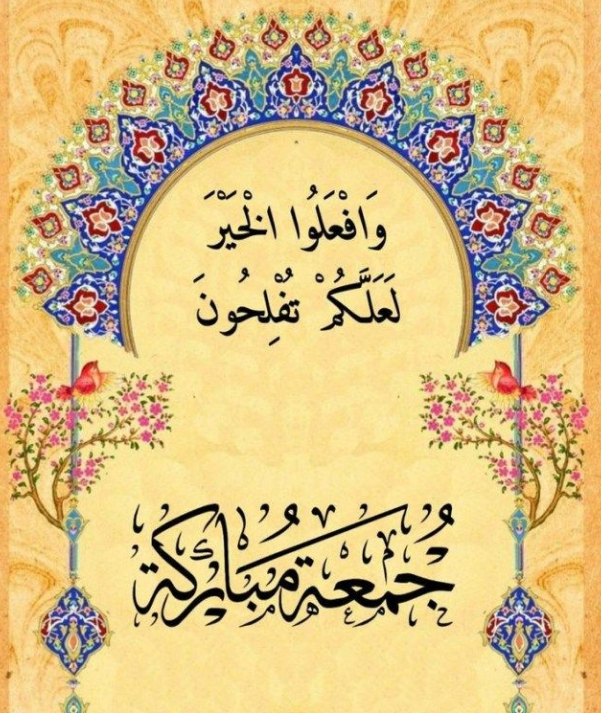 وَافْعَلُوا الْخَيْرَ
لَعَلَّكُمْ تُفْلِحُونَ
جُمعة مُباركة